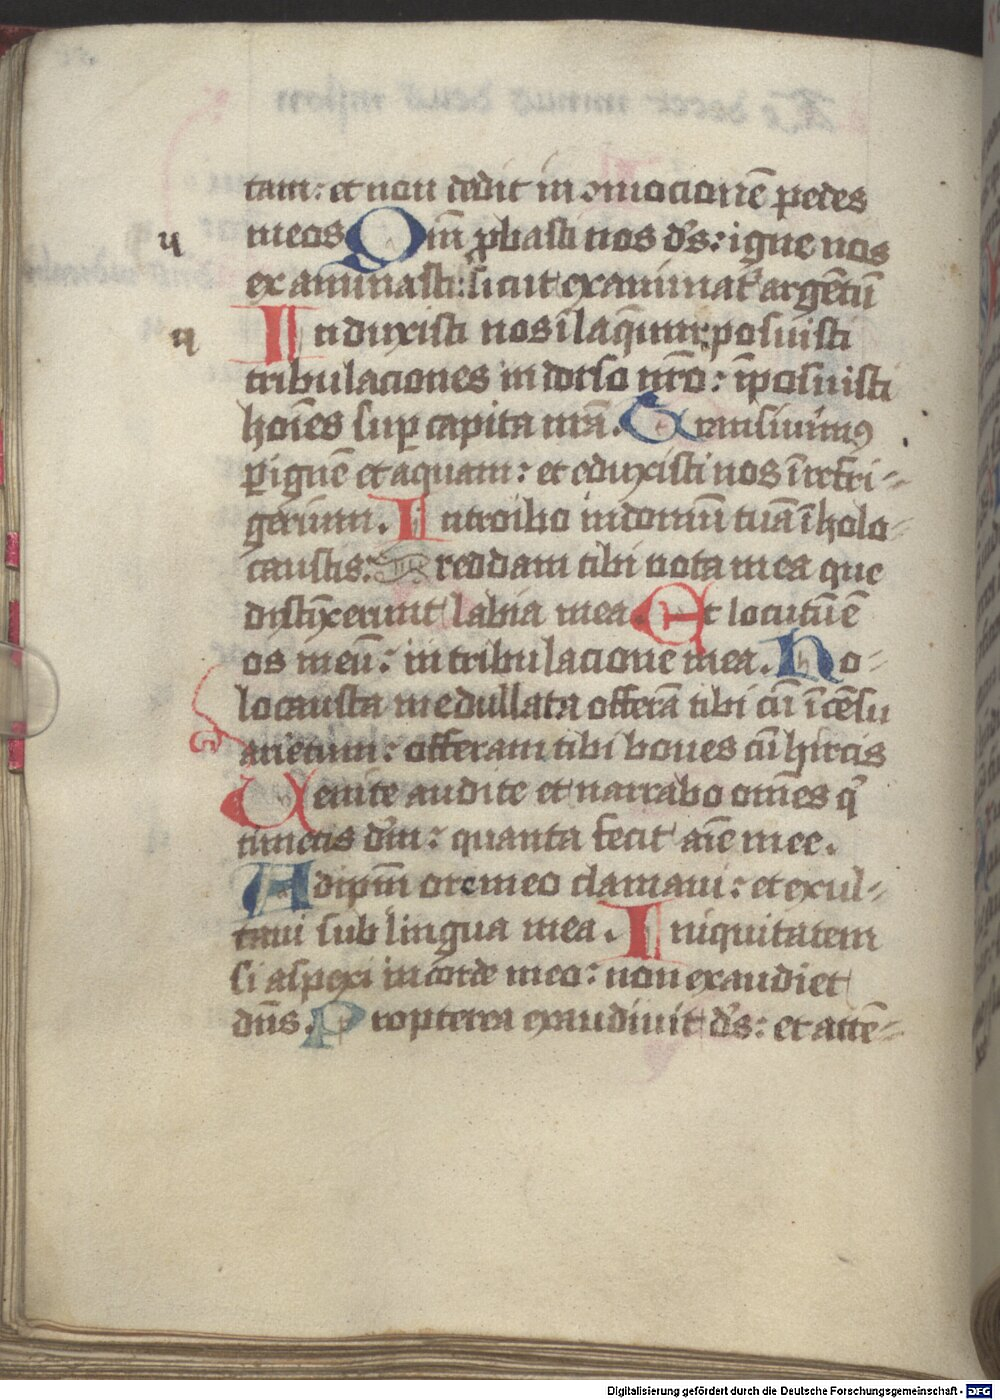 tam: et non dedit in ꝯmocionē pedes
meos Qm̄ ꝓbasti nos ds̄: igne nos
examinasti: sicut examinat᷑ argētū
Induxisti nos ī laq̄um: posuisti
tribulaciones in dorso nr̄o: īposuisti
hoīes suꝑ capita nr̄a. Transiuimꝰ
ꝑ ignē et aquam: et eduxisti nos ī refri-
gerium. Introibo in domū tuā ī holo-
caustis: reddam tibi uota mea que
distīxerunt labia mea Et locutū ē
os meū: in tribulacione mea. Ho-
locausta medullata offerā tibi cū īcēsu
arietum: offeram tibi boues cū hircis
Uenite audite et narrabo om̄es q̄
timetis dm̄: quanta fecit aīe mee.
Ad ipm̄ ore meo clamaui: et exul-
taui sub lingua mea. Iniquitatem
si aspexi in corde meo: non exaudiet
dn̄s. Propterea exaudiuit ds̄: et attē-
Digitalisierung gefördert durch die Deutsche Forschungsgemeinschaft - DFG